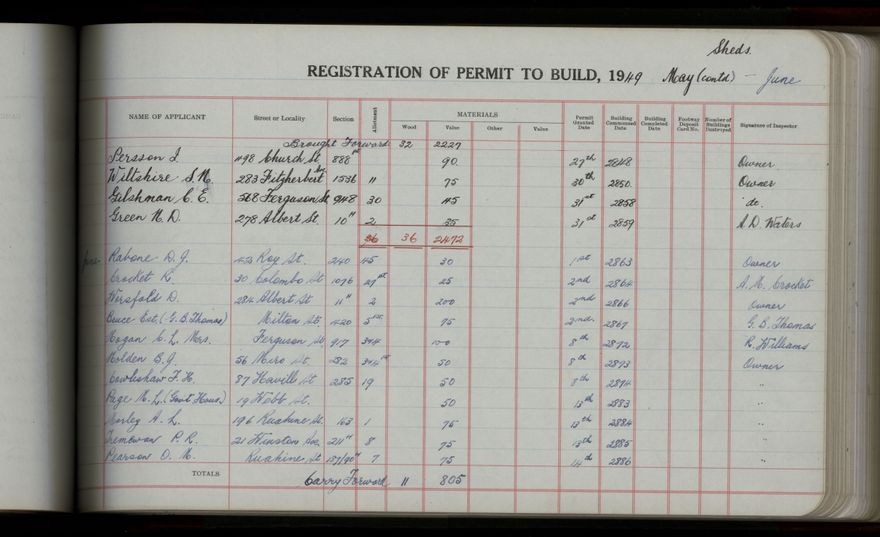 Sheds.
REGISTRATION OF PERMIT TO BUILD, 1949 May (contd) - June
NAME OF APPLICANT Street or Locality Section Allotment MATERIALS Wood Value Other Value Permit Granted Date Building Commenced Date Building Completed Date Footway Deposit Card No. Number of Buildings Destroyed Signature of Inspector
Brought Forward 32 2227
Persson J. 498 Church St. 888 90. 27th 2848 Owner
Wiltshire S.M. 283 Fitzherbert Ave 1536 11 75 30th 2850. Owner
Gilshman C.E. 568 Ferguson St 948 30 45 31st 2858 do.
Green N.D. 278 Albert St. 10" 2 35 31st 2859 A.D. Waters
36 36 2472
June Rabone D.J. Roy St. 240 45 30 1st 2863 Owner
Crocket R. 30 Colombo St 1076 27pt 25 2nd 2864 A.M. Crocket
Worsfold D. 284 Albert St 11" 2 200 2nd 2866 Owner
Bruce Est. (G.B. Thomas) Milton St. 1420 5pt 75 2nd 2867 G.B. Thomas
Hogan C.L. Mrs. Ferguson St 917 394 100 8th 2872 R. Williams
Holden B.J. 56 Miro St. 282 394pt 50 8th 2873 Owner
Cowlishaw F.H. 87 Havill St 285 19 50 8th 2874 "
Page N.L. (Govt Hous.) 19 Webb St. 50 13th 2883 "
Morley A.L. 196 Ruahine St. 163 1 75 13th 2884 "
Tremewan P.R. 21 Winston Ave. 211" 8 75 13th 2885 "
Pearson O.M. Ruahine St 189/90" 7 75 14th 2886
TOTALS Carry Forward 11 805